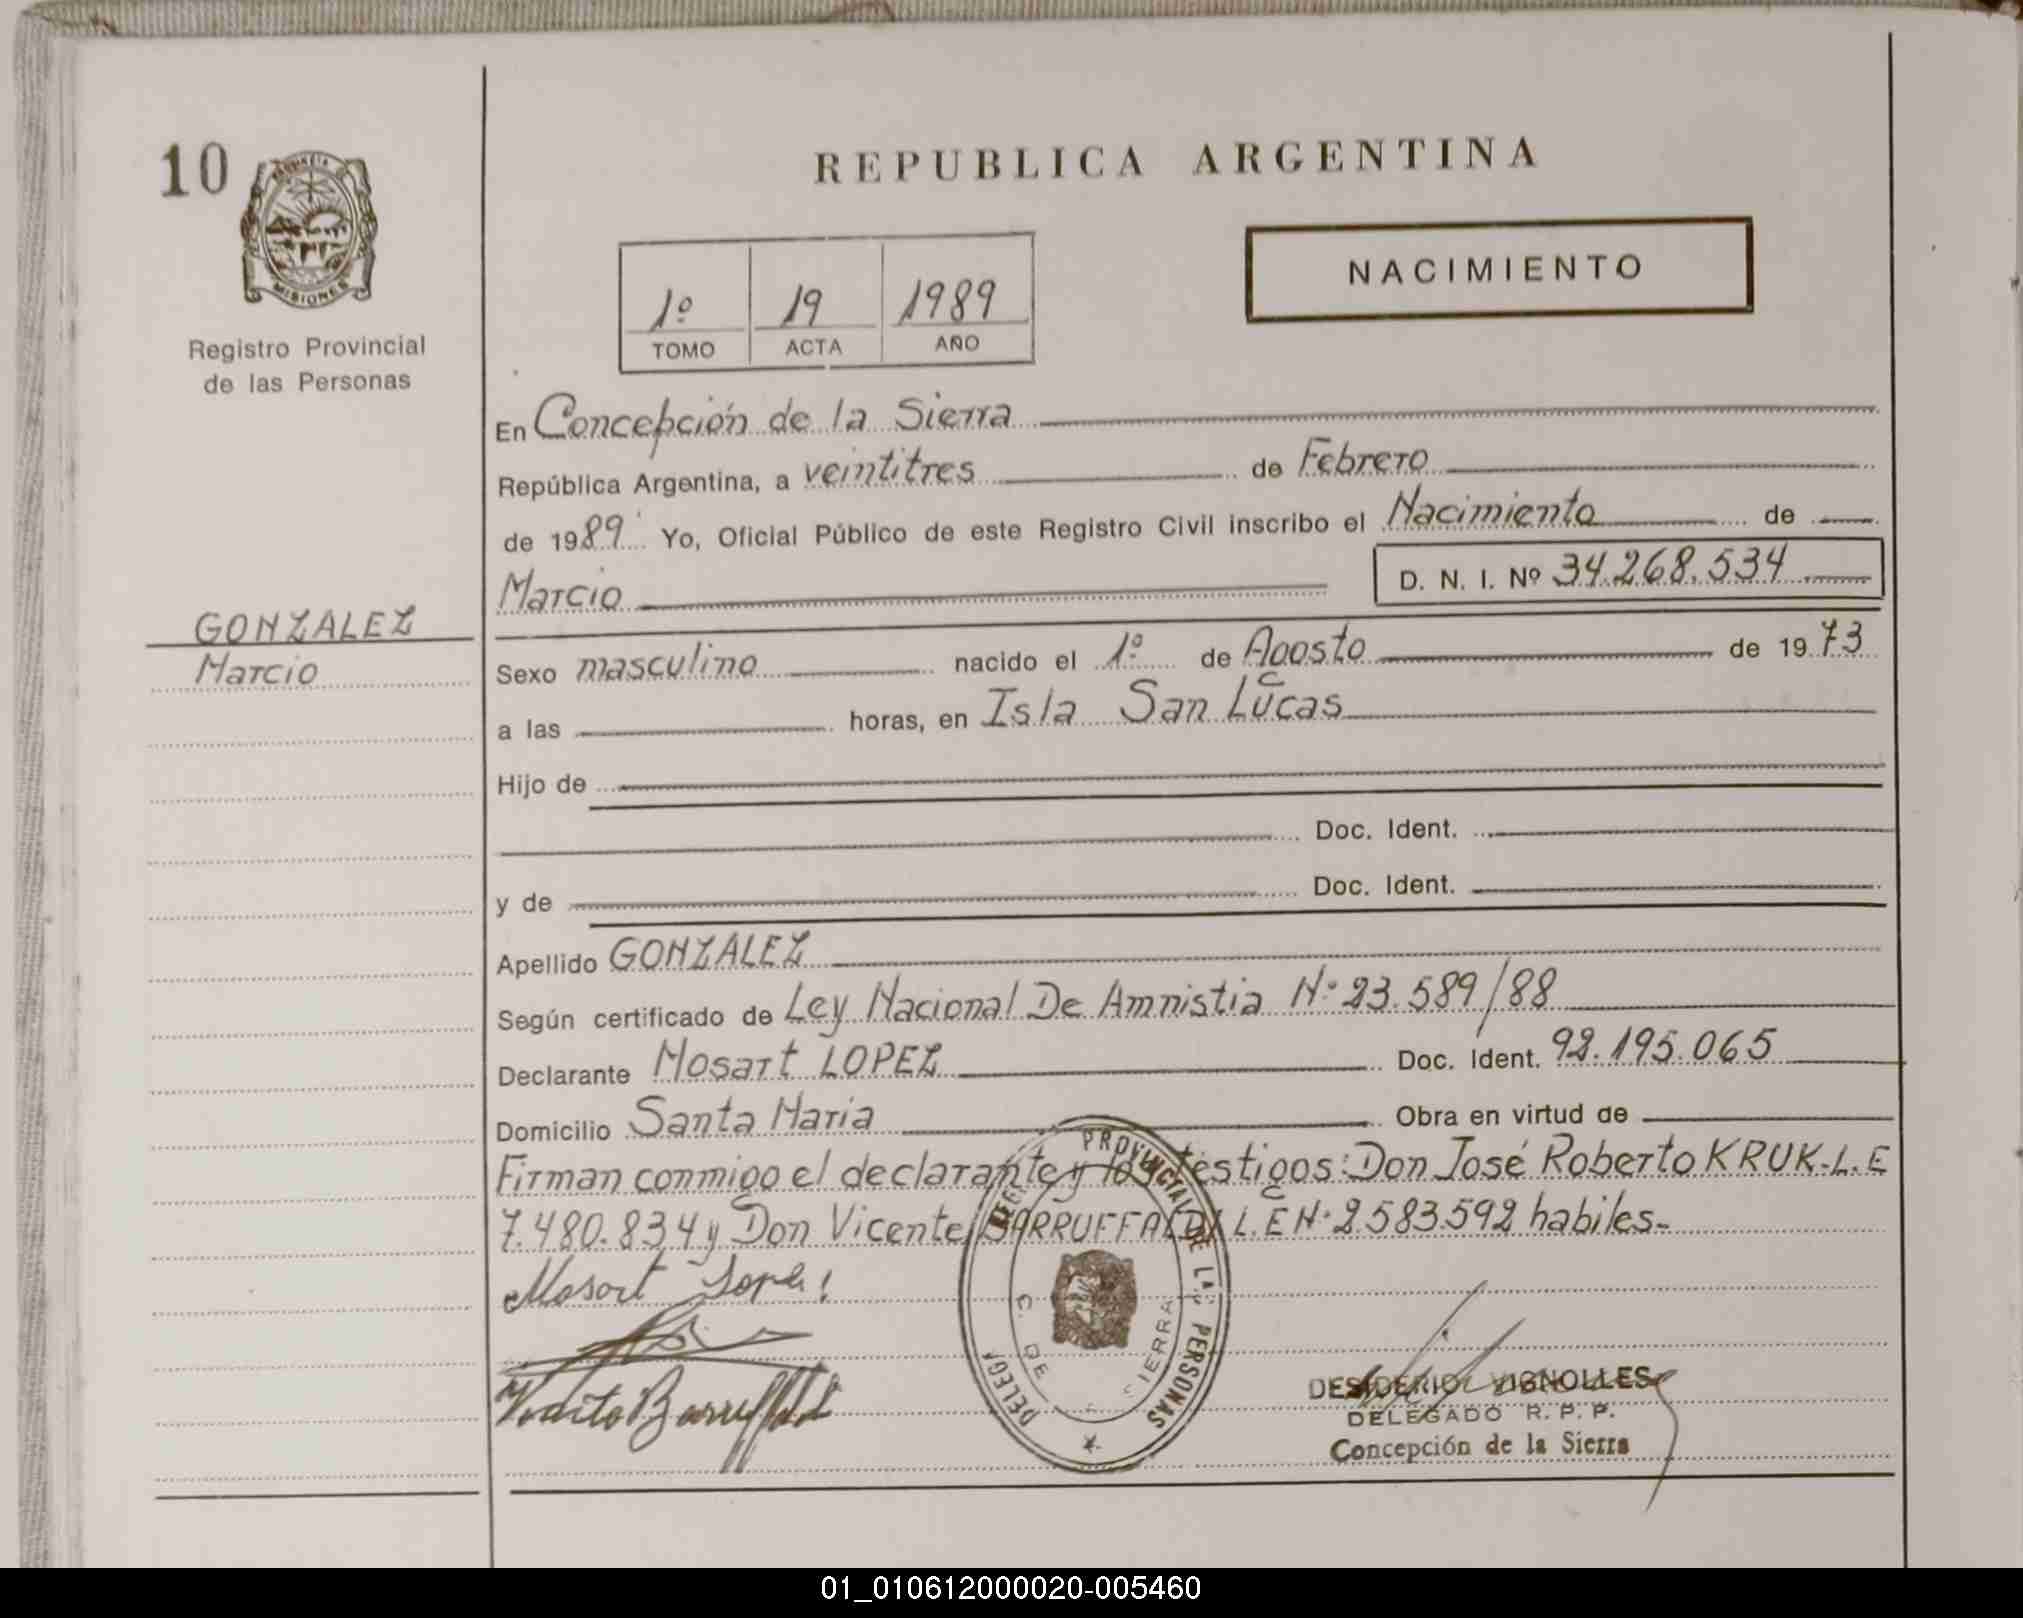 10
MISIONES
Registro Provincial
de las Personas
GONZALEZ
Marcio
REPUBLICA ARGENTINA
NACIMIENTO
1º 19 1989
TOMO ACTA AÑO
En Concepción de la Sierra
República Argentina, a veintitres de Febrero
de 1989 Yo, Oficial Público de este Registro Civil inscribo el Nacimiento de
Marcio D. N. I. Nº 34.268.534
Sexo masculino nacido el 1º de Agosto de 1973
a las horas, en Isla San Lucas
Hijo de
Doc. Ident.
y de Doc. Ident.
Apellido GONZALEZ
Según certificado de Ley Nacional De Amnistia Nº 23.589/88
Declarante Mosart LOPEZ Doc. Ident. 92.195.065
Domicilio Santa Maria Obra en virtud de
Firman conmigo el declarante y los testigos: Don José Roberto KRUK-L.E
7.480.834 y Don Vicente BARRUFFALDI L.E Nº 2.583.592 habiles-
Mosart Lopez
PROVINCIAL DE LAS PERSONAS
C. DE SIERRA
DESIDERIO VIGNOLLES
DELEGADO R. P. P.
Concepción de la Sierra
01_010612000020-005460